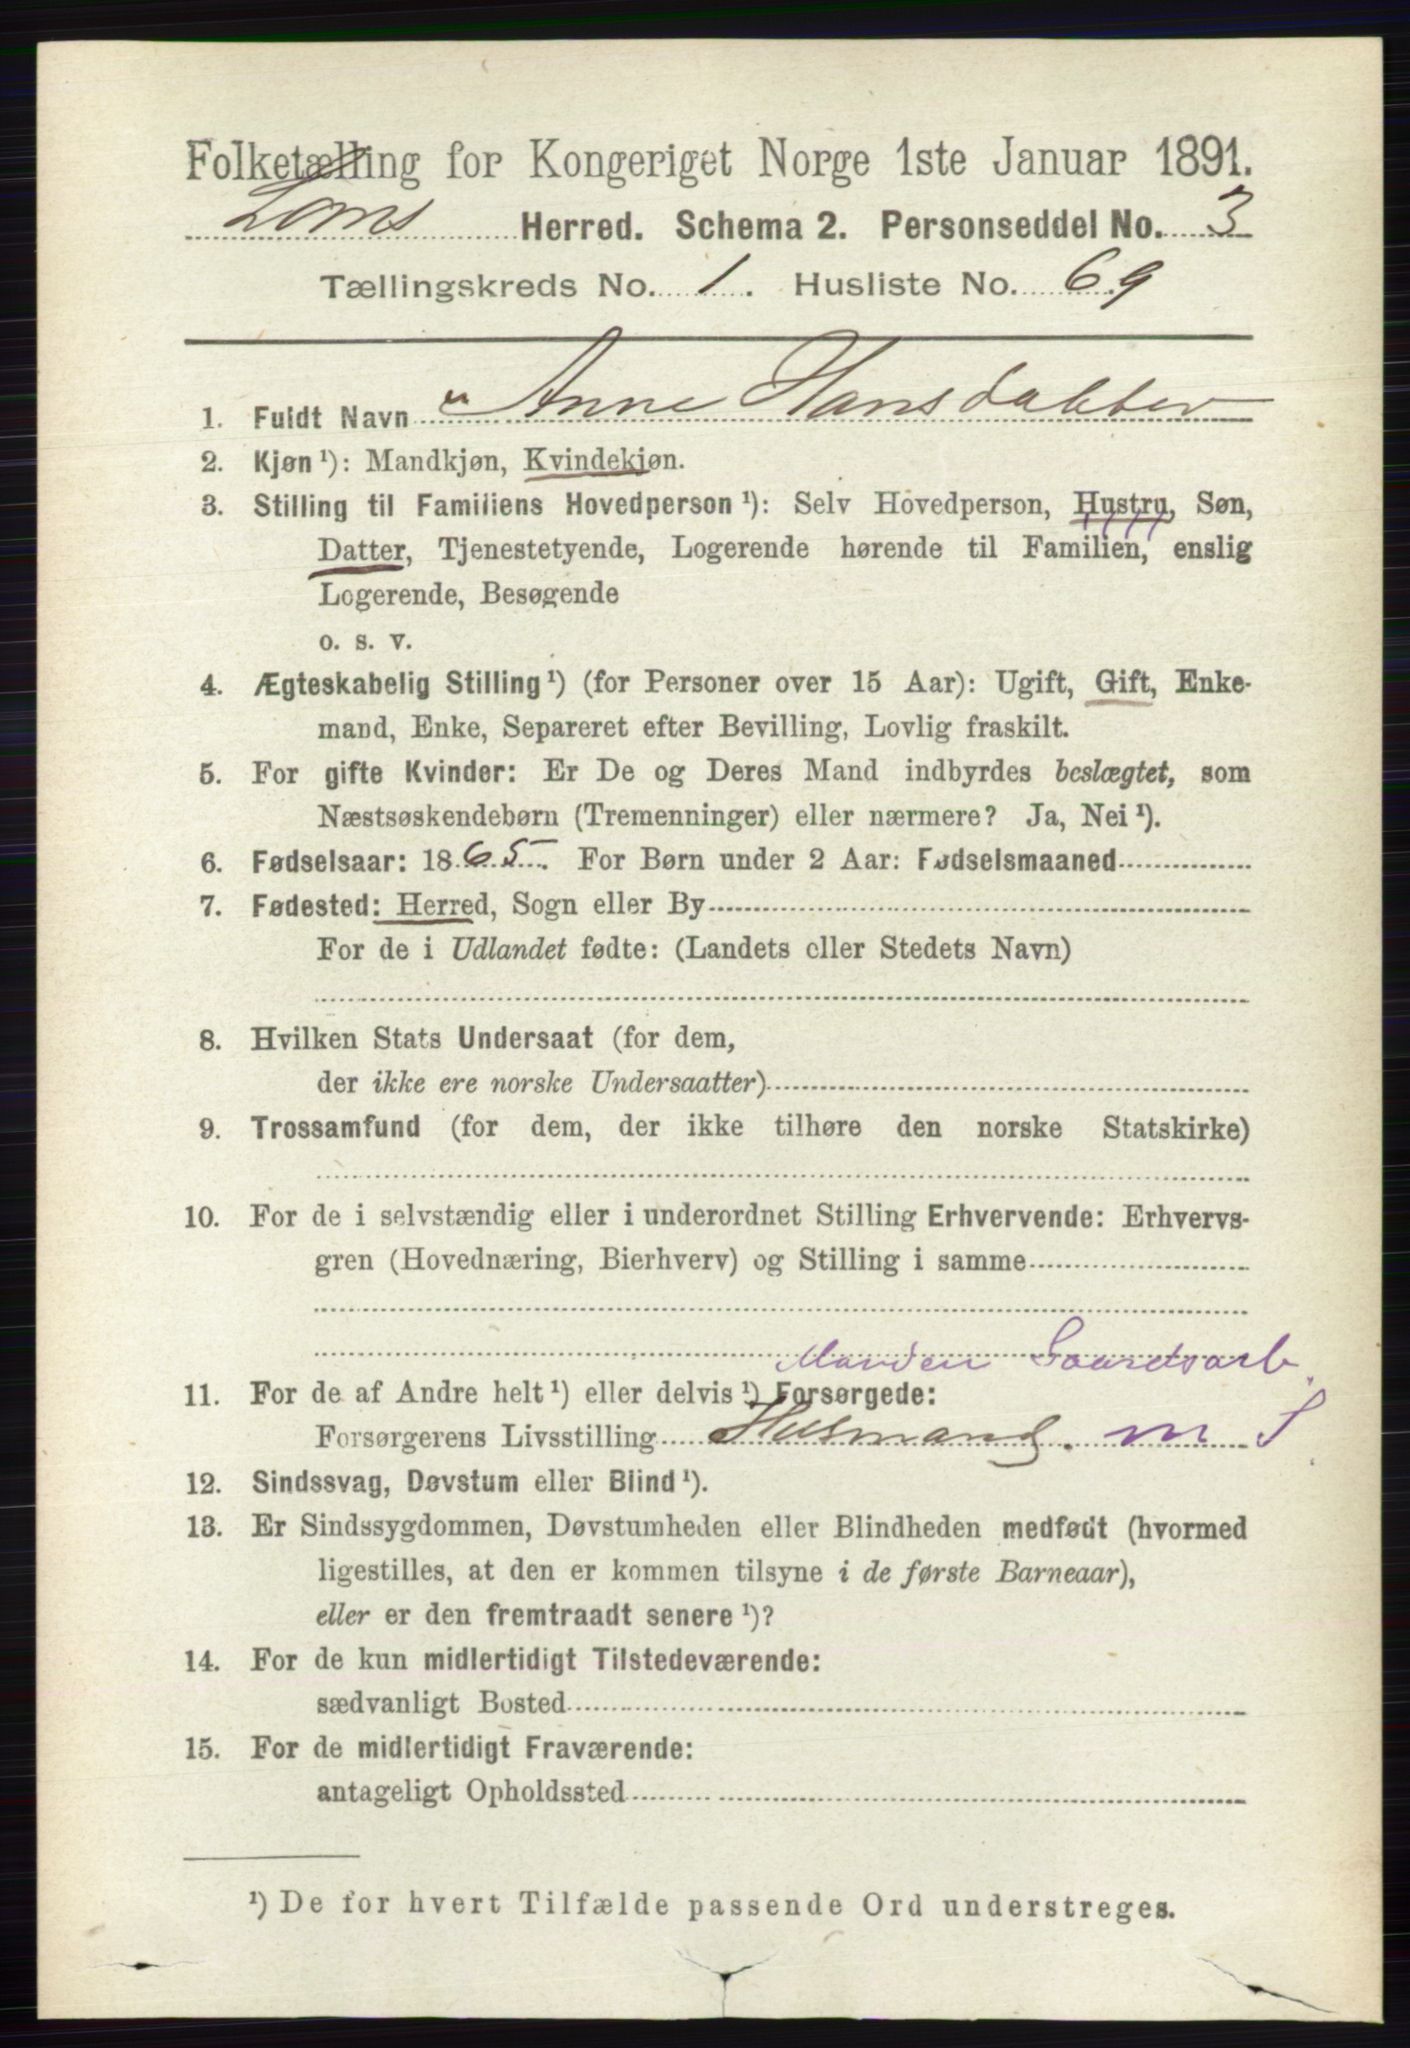 Folketælling for Kongeriget Norge 1ste Januar 1891.
Loms Herred. Schema 2. Personseddel No. 3
Tællingskreds No. 1. Husliste No. 69
1. Fuldt Navn Anne Hansdatter
2. Kjøn¹): Mandkjøn, Kvindekjøn.
3. Stilling til Familiens Hovedperson¹): Selv Hovedperson, Hustru, Søn,
Datter, Tjenestetyende, Logerende hørende til Familien, enslig
Logerende, Besøgende
o. s. v.
4. Ægteskabelig Stilling¹) (for Personer over 15 Aar): Ugift, Gift, Enke-
mand, Enke, Separeret efter Bevilling, Lovlig fraskilt.
5. For gifte Kvinder: Er De og Deres Mand indbyrdes beslægtet, som
Næstsøskendebørn (Tremenninger) eller nærmere? Ja, Nei¹).
6. Fødselsaar: 1865. For Børn under 2 Aar: Fødselsmaaned
7. Fødested: Herred, Sogn eller By
For de i Udlandet fødte: (Landets eller Stedets Navn)
8. Hvilken Stats Undersaat (for dem,
der ikke ere norske Undersaatter)
9. Trossamfund (for dem, der ikke tilhøre den norske Statskirke)
10. For de i selvstændig eller i underordnet Stilling Erhvervende: Erhvervs-
gren (Hovednæring, Bierhverv) og Stilling i samme
Manden Gaardsarb.
11. For de af Andre helt¹) eller delvis¹) Forsørgede:
Forsørgerens Livsstilling Husmand. m S
12. Sindssvag, Døvstum eller Blind¹).
13. Er Sindssygdommen, Døvstumheden eller Blindheden medfødt (hvormed
ligestilles, at den er kommen tilsyne i de første Barneaar),
eller er den fremtraadt senere¹)?
14. For de kun midlertidigt Tilstedeværende:
sædvanligt Bosted
15. For de midlertidigt Fraværende:
antageligt Opholdssted
¹) De for hvert Tilfælde passende Ord understreges.